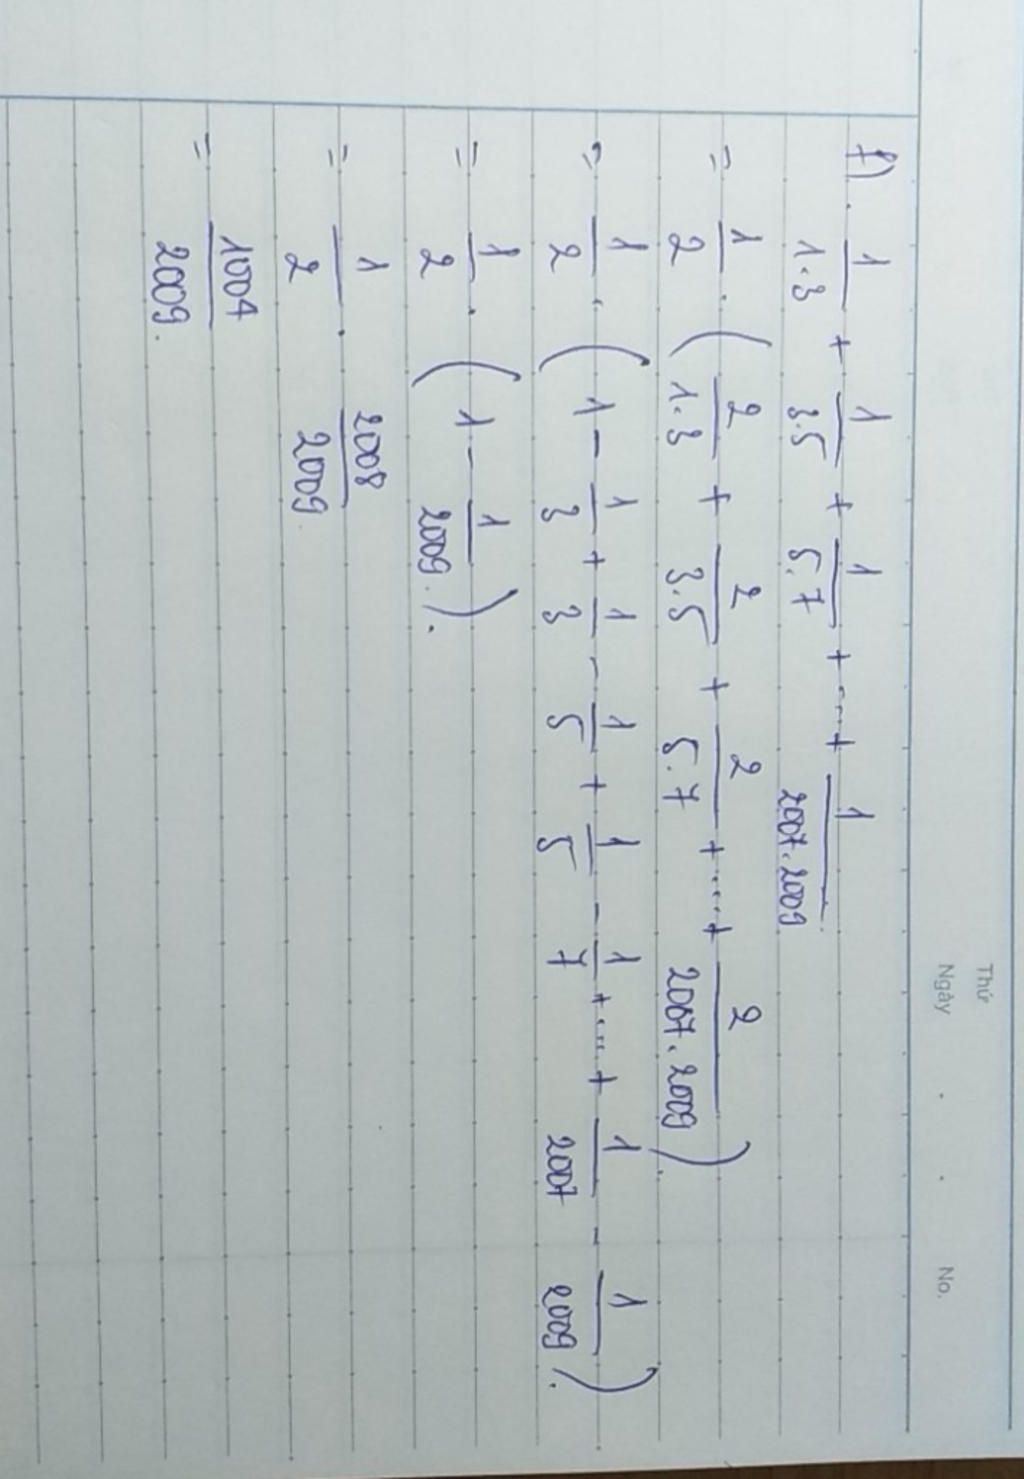 Thứ
Ngày . . No.
f). 1/1.3 + 1/3.5 + 1/5.7 + .... + 1/2007.2009
= 1/2 . ( 2/1.3 + 2/3.5 + 2/5.7 + ..... + 2/2007.2009 ).
= 1/2 . ( 1 - 1/3 + 1/3 - 1/5 + 1/5 - 1/7 + .... + 1/2007 - 1/2009 ).
= 1/2 . ( 1 - 1/2009 ).
= 1/2 . 2008/2009.
= 1004/2009.